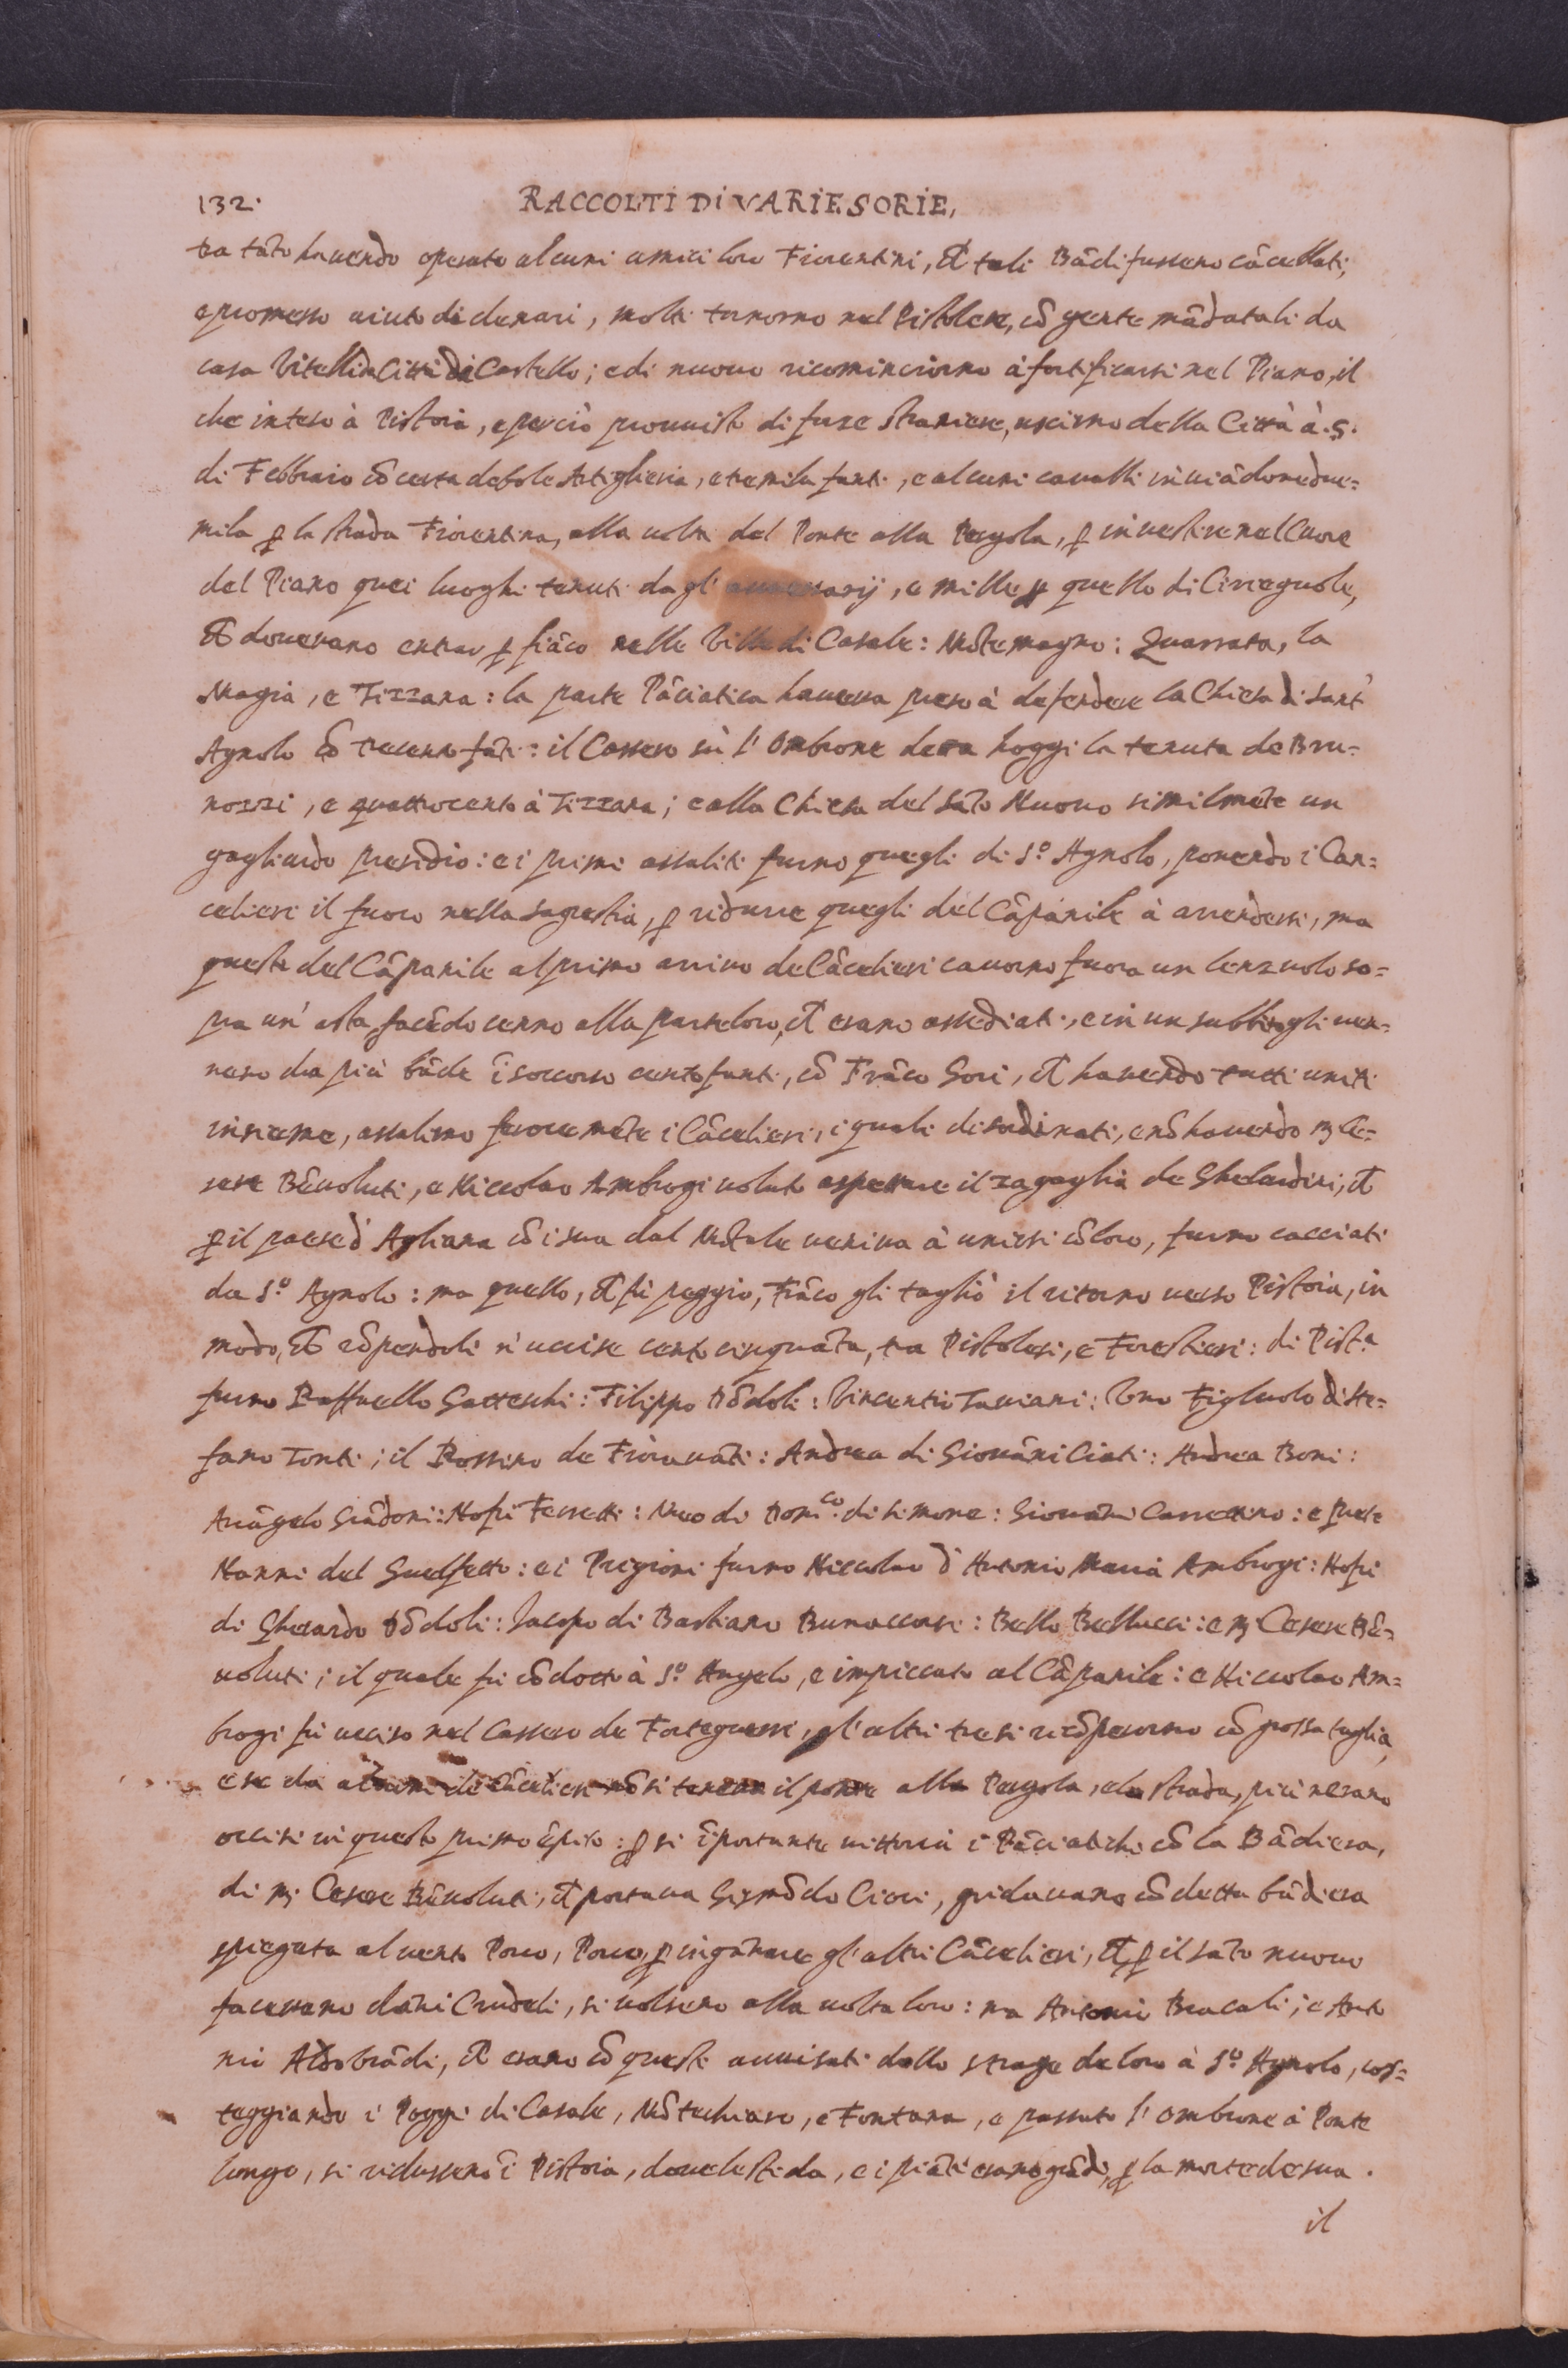 132.
RACCOLTI Di VARIE SORIE,
tra tãto havendo operato alcuni amici loro Fiorentini, ch̃ tali Bãdi fussero cãcellati,
e promesso aiuto di denari, molti tornorno nel Pistolese, cõ gente mãdatali da
casa Vitelli da Città di Castello; e di nuovo ricominciorno à fortificarsi nel Piano, il
che inteso à Pistoia, e perciò provvisto di forze straniere, uscirno della Città à .5.
di Febbraio cõ certa debole Artiglieria, e tremila fanti, e alcuni cavalli inviãdone due=
mila ꝑ la strada Fiorentina, alla volta del Ponte alla Pergola, ꝑ investire nel Cuore
del Piano quei luoghi tenuti dagl' avversarij, e mille ꝑ quello di Ciriegiole,
ch̃ dovevano entrar ꝑ fiãco nelle Ville di Casale: Mõtemagno: Quarrata, la
Magia, e Tizzana: la parte Pãciatica haveva preso à defendere la Chiesa di Sant'
Agnolo cõ trecento fãti: il Cassero sù l' Ombrone detta hoggi la tenuta de Bru=
nozzi, e quattrocento à Tizzana; e alla Chiesa del Sãto Nuovo similmẽte un
gagliardo presidio: e i primi assaliti furno quegli di S.º Agnolo, ponendo i Can=
celieri il fuoco nella sagrestia, ꝑ ridurre quegli del Cãpanile à arrendersi, ma
questi del Cãpanile al primo arrivo de Cãcelieri cavorno fuora un lenzuolo so=
pra un' asta facẽdo cenno alla parte loro, ch̃ erano assediati, e in un subbito gli ven=
nero da più bãde ĩ soccorso cento fanti, cõ Frãco Gori, ch̃ havendo tutti uniti
insieme, assalirno ferocemẽte i Cãcelieri, i quali disordinati, e nõ havendo M. Ce=
sere Bẽvoluti, e Niccolao Ambrogi voluto aspettare il zagaglia de Ghelardini, ch̃
ꝑ il paese d' Agliana cõ i sua dal Mõtale veniva à unirsi cõ loro, furno cacciati
da S.º Agnolo: ma quello, ch̃ fù peggio, Frãco gli tagliò il ritorno verso Pistoia, in
modo, ch̃ rõpendoli n' uccise cento cinquãta, tra Pistolesi, e Forestieri: di Pist.ª
furno Raffaello Gatteschi: Filippo Dõdoli: Vincentio Taviani: Vno Figluolo di Ste=
fano Tonti; il Rossino de Fioravãti: Andrea di Giovãni Ciati: Andrea Boni:
Arcãgelo Giãdoni: Nofri Ferretti: Meo di Dom.co di Simone: Giovãni Carrettino: e Prete
Nanni del Guelfetto: e i Prigioni furno Niccolao d' Antonio Maria Ambrogi: Nofri
di Gherardo Dõdoli: Jacopo di Bastiano Bunaccorsi: Bello Bellucci: e M. Cesere Bẽ=
voluti; il quale fù cõdotto à S.º Angelo, e impiccato al Cãpanile: e Niccolao Am=
brogi fù ucciso nel Cassero de Forteguerri, gl' altri tre si ricõperorno cõ grossa taglia,
e se da alcuni de Cãcelieri nõ si teneva il ponte alla Pergola, e la strada, più n'erano
occisi in questo primo ĩpito: ꝑ sì ĩportante vittoria i Pãciatichi cõ la Bãdiera,
di M. Cesere Bẽvoluti, ch̃ portava Gismõdo Cioci, gridavano cõ detta bãdiera
spiegata al vento Porco, Porco, ꝑ ingãnare gl' altri Cãcelieri, ch̃ ꝑ il sãto nuovo
facevano dãni Crudeli, si volsero alla volta loro: ma Antonio Bracali; e Anto
nio Aldobrãdi, ch̃ erano cõ questi avvisati dello strage de loro à S.º Agnolo, cos=
teggiando i Poggi di Casale, Mõtechiaro, e Fontana, e passato l' Ombrone à Ponte
lungo, si ridussero ĩ Pistoia, dove le strida, e i piãti erano grãdi, ꝑ la morte de sua.
il